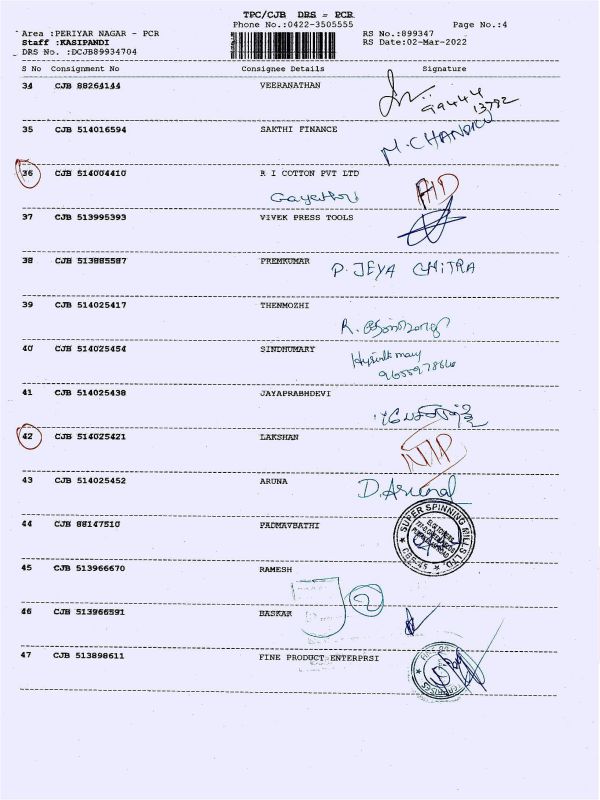 TPC/CJB DRS - PCR
Phone No.:0422-3505555 Page No.:4
Area :PERIYAR NAGAR - PCR RS No.:899347
Staff :KASIPANDI RS Date:02-Mar-2022
DRS No. :DCJB89934704
S No Consignment No Consignee Details Signature
34 CJB 88264144 VEERANATHAN
99444
13792
35 CJB 514016594 SAKTHI FINANCE
M.CHANDRU
36 CJB 514004410 R I COTTON PVT LTD
Gayathri
37 CJB 513995393 VIVEK PRESS TOOLS
38 CJB 513885587 PREMKUMAR
P. JEYA CHITRA
39 CJB 514025417 THENMOZHI
R.
40 CJB 514025454 SINDHUMARY
41 CJB 514025438 JAYAPRABHDEVI
42 CJB 514025421 LAKSHAN
43 CJB 514025452 ARUNA
D. Arunal
44 CJB 88147510 PADMAVBATHI
SUPER SPINNING MILLS LTD.
CBE-45
45 CJB 513966670 RAMESH
46 CJB 513966591 BASKAR
47 CJB 513898611 FINE PRODUCT ENTERPRSI